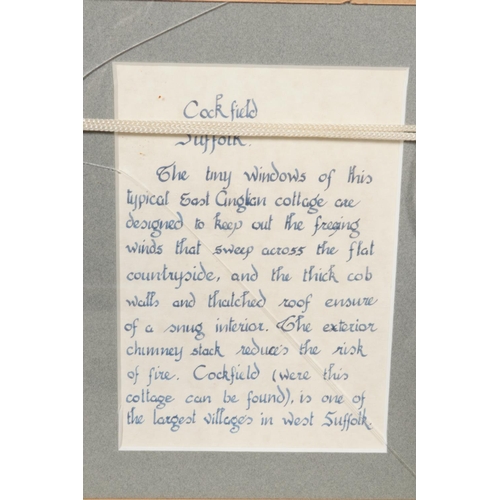 Cockfield
Suffolk.
The tiny windows of this
typical East Anglian cottage are
designed to keep out the freezing
winds that sweep across the flat
countryside, and the thick cob
walls and thatched roof ensure
of a snug interior. The exterior
chimney stack reduces the risk
of fire. Cockfield (were this
cottage can be found), is one of
the largest villages in west Suffolk.